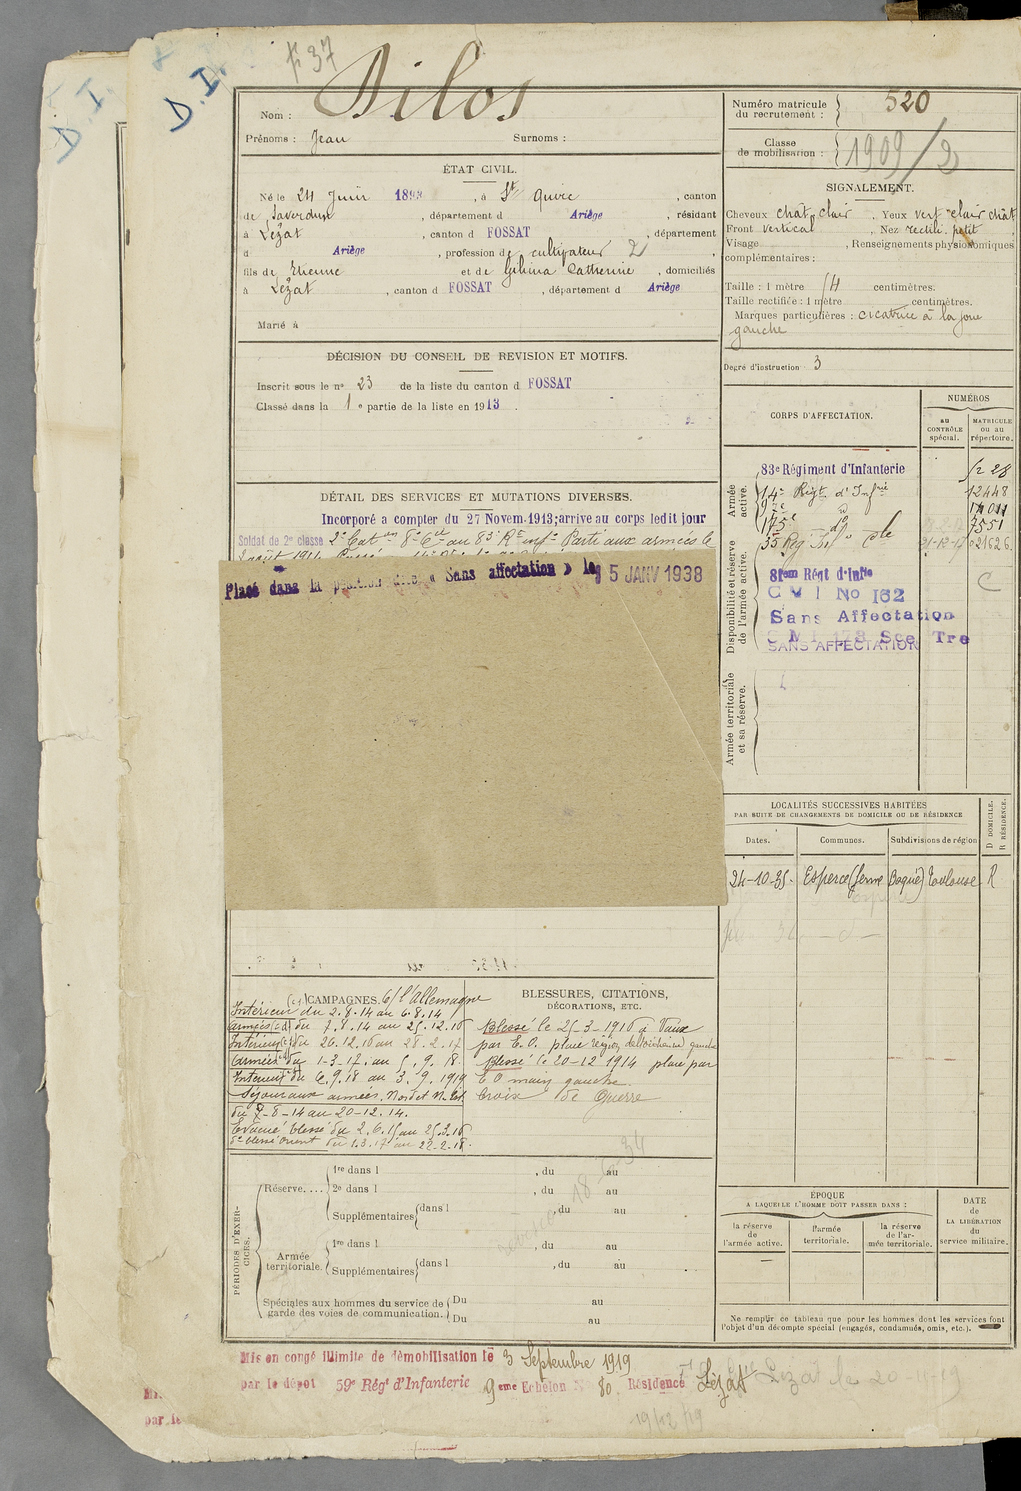 F 37
D. I.
D. I.
Nom : Dilos
Prénoms : Jean Surnoms :
ÉTAT CIVIL.
Né le 24 Juin 1893, à St Quirc, canton
de Saverdun, département d Ariège, résidant
à Lézat, canton d FOSSAT, département
d Ariège, profession de cultivateur 2
fils de Etienne et de Gilima Catherine, domiciliés
à Lezat, canton d FOSSAT, département d Ariège
Marié à
DÉCISION DU CONSEIL DE REVISION ET MOTIFS.
Inscrit sous le no 23 de la liste du canton d FOSSAT
Classé dans la 1e partie de la liste en 1913.
DÉTAIL DES SERVICES ET MUTATIONS DIVERSES.
Incorporé a compter du 27 Novem. 1913; arrive au corps ledit jour
Soldat de 2e classe 2e Cat on 8e Cie au 83e Rt inf ie Parti aux armées le
Placé dans la position dite « Sans affectation » le 15 JANV 1938
CAMPAGNES. c/ l'Allemagne
Intérieur du 2.8.14 au 6.8.14
armées (cd) du 7.8.14 au 25.12.16
Intérieur du 26.12.16 au 28.2.17
armées du 1-3-17. au 5.9.18.
Intérieur du 6.9.18 au 3.9.1919
Séjour aux armées, Nord et N. Est
du 7-8-14 au 20-12.14.
Evacué blessé du 2.6.15 au 25.3.16
de blessé orient du 1.3.17 au 22-2.18.
BLESSURES, CITATIONS,
DÉCORATIONS, ETC.
Blessé le 25-3-1916 à Vaux
par E.O. plaie région deltoïdienne gauche
Blessé le 20-12 1914 plaie par
E O main gauche.
Croix de Guerre
PÉRIODES D'EXERCICES.
Réserve.... 1re dans l , du au
2e dans l , du au
Supplémentaires dans l , du au
Armée territoriale. 1re dans l , du au
Supplémentaires dans l , du au
Spéciales aux hommes du service de garde des voies de communication. Du au
Du au
Mis en congé illimité de démobilisation le 3 Septembre 1919
par le dépôt 59e Régt d'Infanterie 9eme Echelon No 80 Résidence Lézat
Lezat le 20-11-19
19/12/19
Numéro matricule du recrutement : 520
Classe de mobilisation : 1909/2
SIGNALEMENT.
Cheveux chat. clair, Yeux vert clair chat
Front vertical, Nez rectili. petit,
Visage , Renseignements physionomiques
complémentaires :
Taille : 1 mètre 14 centimètres.
Taille rectifiée : 1 mètre centimètres.
Marques particulières : cicatrice à la joue
gauche
Degré d'instruction 3
CORPS D'AFFECTATION.
NUMÉROS
au CONTRÔLE spécial.
MATRICULE ou au répertoire.
Armée active.
83e Régiment d'Infanterie
14e Régt d'Infrie 12448
175e do 7551
35 Reg Inf Cle 31-12-17 021626
Disponibilité et réserve de l'armée active.
81em Régt d'Infie
C M I No 162
Sans Affectation
C M I 173 Sce Tre
SANS AFFECTATION
C
Armée territoriale et sa réserve.
LOCALITÉS SUCCESSIVES HABITÉES
PAR SUITE DE CHANGEMENTS DE DOMICILE OU DE RÉSIDENCE
Dates. Communes. Subdivisions de région D DOMICILE. R RÉSIDENCE.
24-10-35. Esperce (ferme Baqué) Toulouse R
ÉPOQUE
A LAQUELLE L'HOMME DOIT PASSER DANS :
la réserve de l'armée active.
l'armée territoriale.
la réserve de l'armée territoriale.
DATE de LA LIBÉRATION du service militaire.
Ne remplir ce tableau que pour les hommes dont les services font
l'objet d'un décompte spécial (engagés, condamnés, omis, etc.).